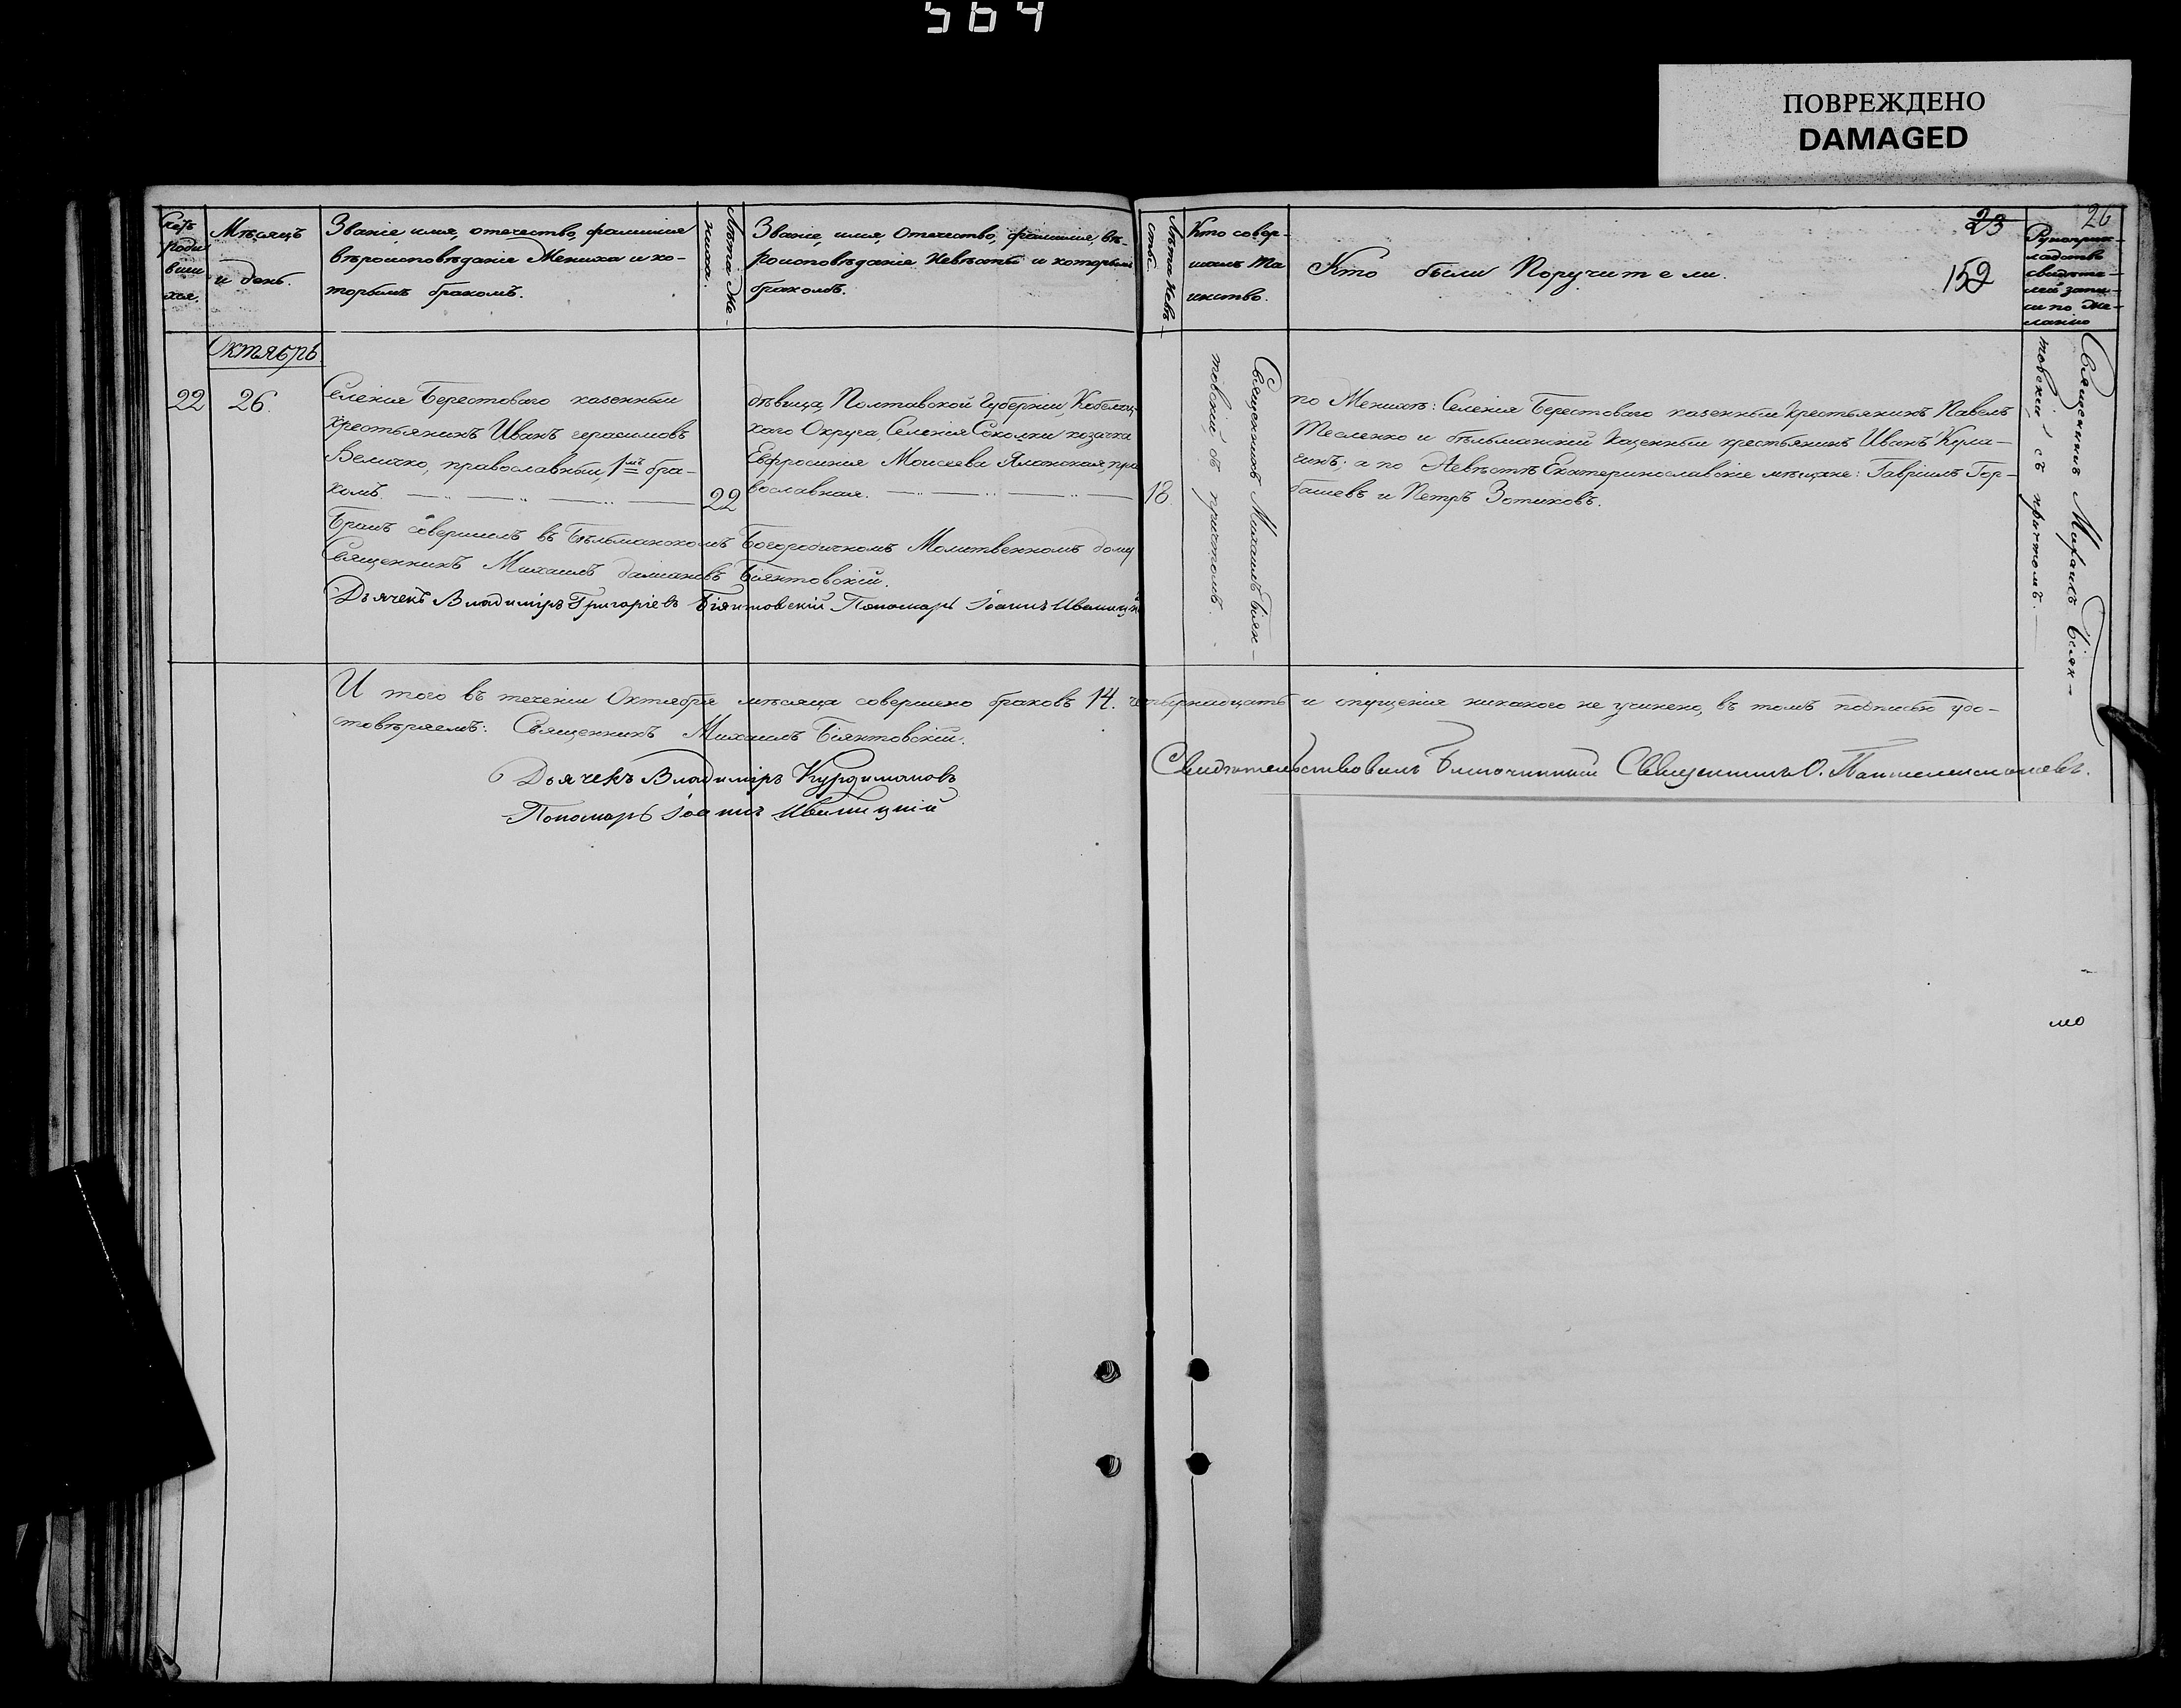 564
ПОВРЕЖДЕНО
DAMAGED
Счетъ
родив
шихся.
Мѣсяцъ
и день.
Званіе, имя, отечество, фамилія
вѣроисповѣданіе Жениха и ко-
торымъ бракомъ.
Лѣта Же-
ниха.
Званіе, имя, Отечество, фамилія, вѣ-
роисповѣданіе Невѣсты и которымъ
бракомъ.
Лѣта Невѣ-
сты.
Кто совер-
шалъ Та
инство.
Кто были Поручители.
23
152
26
Рукопри-
кладство
свидѣте-
лей запи-
си по Же-
ланію
Октябрь
22
26.
Селенія Берестоваго казенный
крестьянинъ Иванъ Герасимовъ
Величко, православный, 1мъ бра-
комъ.
22
дѣвица, Полтавской Губерніи, Кобеляц-
каго Округа, Селенія Соколки козачка
Евфросинія Моисеева Яланская, пра
вославная.
18.
Священникъ Михаилъ Біян-
товскій съ причтомъ.
по Женихѣ: Селенія Берестоваго казенный крестьянинъ Павелъ
Тесленко и бѣльманскій казенный крестьянинъ Иванъ
а по Невѣстѣ Екатеринославскіе мѣщане: Гавріилъ Гор-
башевъ и Петръ Зотиковъ.
Священникъ Михаилъ Біян-
товскій съ причтомъ.
Бракъ совершилъ въ Бѣльманскомъ Богородичномъ Молитвенномъ дому
Священникъ Михаилъ Даміановъ Біянтовскій.
Дьячекъ Владиміръ Григоріевъ Біянтовскій Пономарь Іоаннъ Ивлицкій
И того въ теченіи Октября мѣсяца совершено браковъ 14. четырнадцать и опущенія никакого не учинено, въ томъ подписью удо-
стовѣряемъ: Священникъ Михаилъ Біянтовскій.
Дьячекъ Владиміръ Курдимановъ
Пономарь Іоаннъ Ивлицкій
Свидѣтельствовалъ Благочинный Священникъ О.
мо